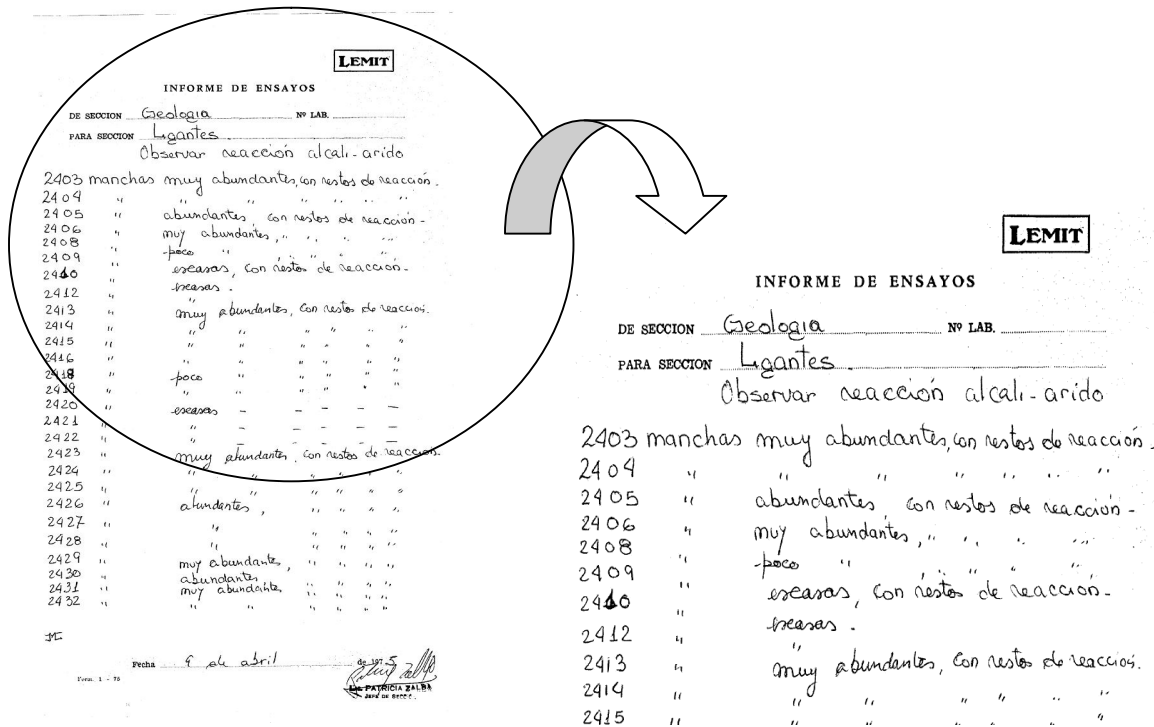 LEMIT
INFORME DE ENSAYOS
DE SECCION Geologia Nº LAB.
PARA SECCION Ligantes.
Observar reacción alcali-arido
2403 manchas muy abundantes, con restos de reacción.
2404 " " " " " " "
2405 " abundantes, con restos de reacción-
2406 " muy abundantes, " " " "
2408 " poco " " " "
2409 " escasas, con restos de reacción-
2410 " escasas.
2412 " "
2413 " muy abundantes, con restos de reacción.
2414 " " " " " " "
2415 " " " " " " "
2416 " " " " " " "
2418 " poco " " " "
2419 " " " " " "
2420 " escasas - - - -
2421 " " - - - -
2422 " " - - - -
2423 " muy abundantes, con restos de reacción.
2424 " " " " " " "
2425 " " " " " " "
2426 " abundantes, " " " "
2427 " " " " " "
2428 " " " " " "
2429 " muy abundantes, " " " "
2430 " abundantes " " " "
2431 " muy abundantes " " " "
2432 " " " " " " "
Fecha 9 de abril de 1975
Form. 1 - 75
Lic. PATRICIA ZALBA
JEFE DE SECC.
LEMIT
INFORME DE ENSAYOS
DE SECCION Geologia Nº LAB.
PARA SECCION Ligantes.
Observar reacción alcali-arido
2403 manchas muy abundantes, con restos de reacción.
2404 " " " " " " "
2405 " abundantes, con restos de reacción-
2406 " muy abundantes, " " " "
2408 " poco " " " "
2409 " escasas, con restos de reacción-
2410 " escasas.
2412 " "
2413 " muy abundantes, con restos de reacción.
2414 " " " " " " "
2415 " " " " " " "